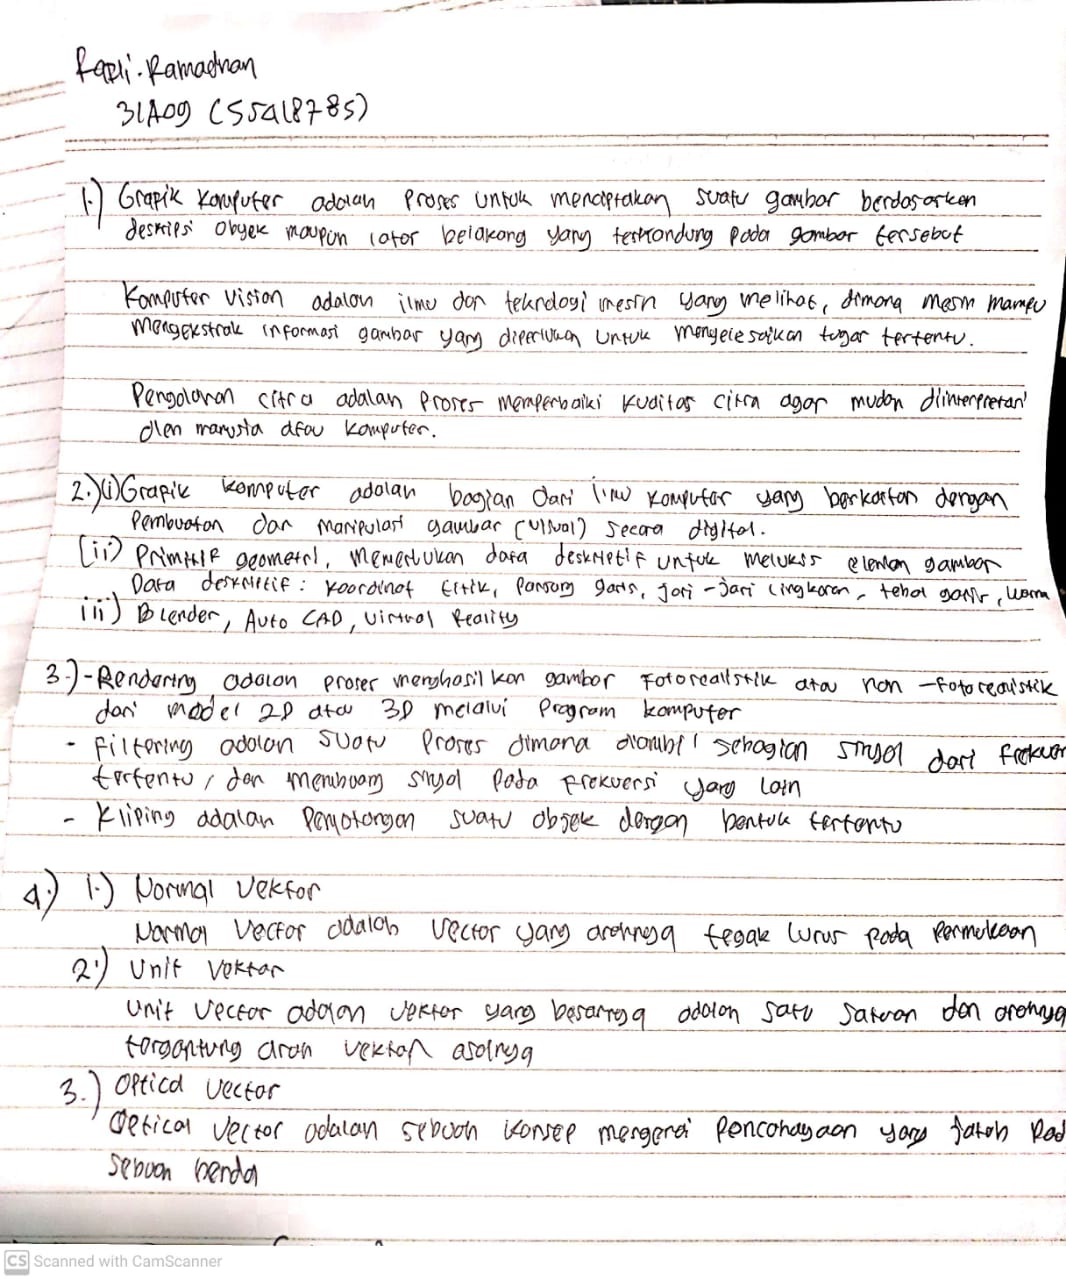 Ramadhan
1.) Grapik Komputer adalah Proses untuk menciptakan suatu gambar berdasarkan
deskripsi Obyek maupun latar belakang yang terkandung Pada gambar tersebut
Komputer Vision adalah ilmu dan teknologi mesin yang melihat, dimana mesin mampu
Mengekstrak informasi gambar yang diperlukan untuk menyelesaikan tugas tertentu.
Pengolahan citra adalah Proses memperbaiki kualitas citra agar mudah diinterpretasi
Oleh manusia atau Komputer.
2.) (i) Grapik komputer adalah bagian dari ilmu Komputer yang berkaitan dengan
Pembuatan dan Manipulasi gambar (visual) secara digital.
(ii) Primitif geometri, memerlukan data deskriptif untuk melukis elemen gambar
Data deskriptif : Koordinat titik, Panjang garis, jari - jari lingkaran, tebal garis, warna
iii) Blender, Auto CAD, Virtual Reality
3.) - Rendering adalah proses menghasilkan gambar Fotorealistik atau non - fotorealistik
dari model 2D atau 3D melalui Program komputer
- Filtering adalah suatu Proses dimana diambil sebagian sinyal dari frekuen
tertentu, dan membuang sinyal Pada frekuensi yang lain
- Kliping adalah Pemotongan suatu objek dengan bentuk tertentu
4.) 1.) Normal Vektor
Normal Vector adalah Vector yang arahnya tegak lurus pada Permukaan
2.) Unit Vektor
Unit Vector adalah Vektor yang besarnya adalah satu satuan dan arahnya
tergantung arah vektor asalnya
3.) Optical Vector
Optical Vector adalah sebuah konsep mengenai Pencahayaan yang jatuh Pad
sebuah benda
CS Scanned with CamScanner